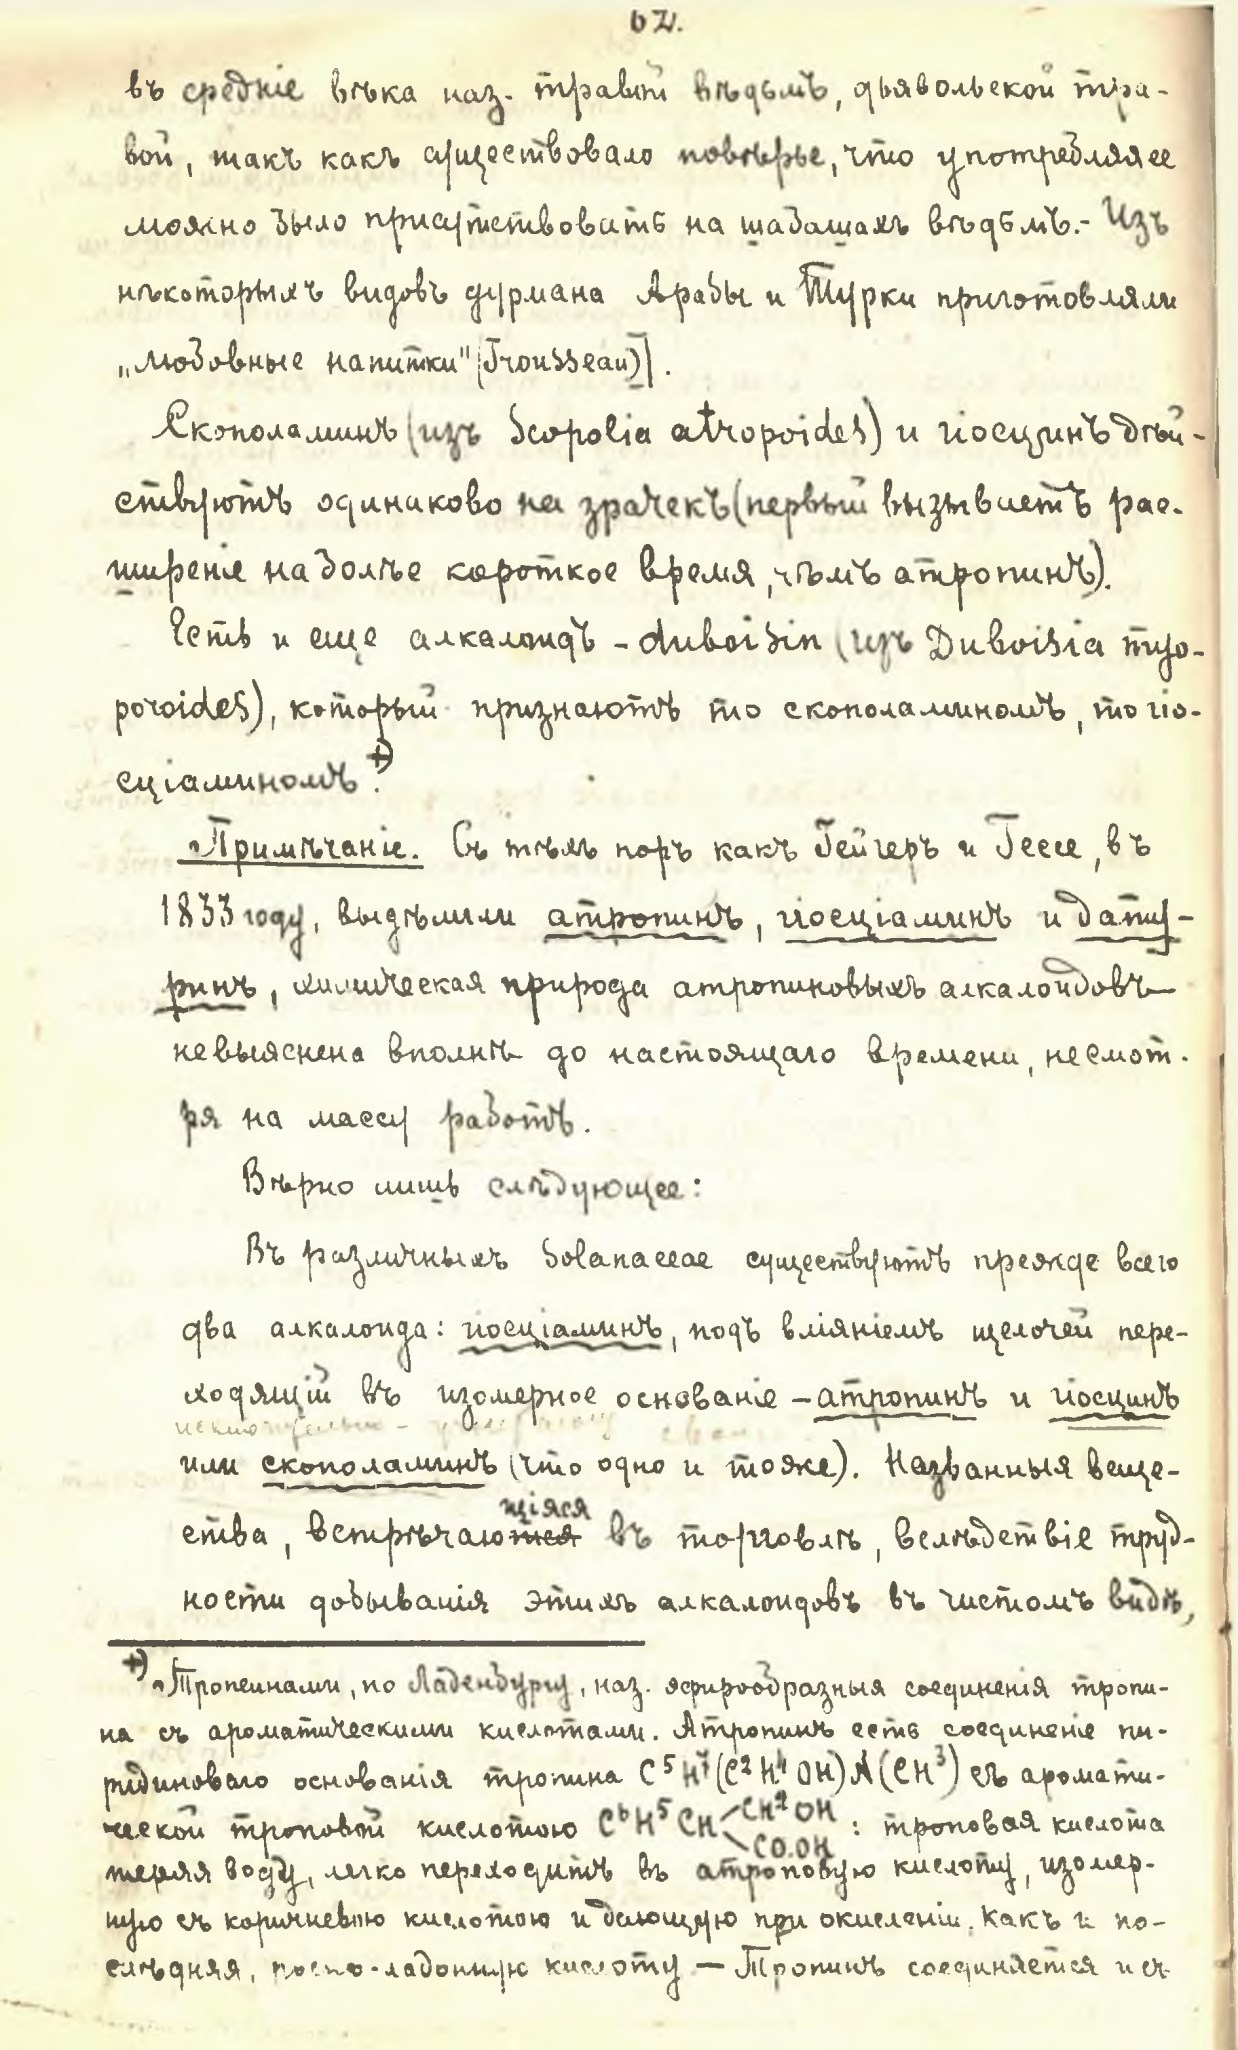 62.
въ средніе вѣка наз. травой вѣдьмъ, дьявольской тра-
вой, такъ какъ существовало повѣрье, что употребляя ее
можно было присутствовать на шабашахъ вѣдьмъ.- Изъ
нѣкоторыхъ видовъ дурмана Арабы и Турки приготовляли
„любовные напитки" (Trousseau)].
Скополаминъ (изъ Scopolia atropoides) и гіосцинъ дѣй-
ствуютъ одинаково на зрачекъ (первый вызываетъ рас-
ширеніе на болѣе короткое время, чѣмъ атропинъ).
Есть и еще алкалоидъ - duboisin (изъ Duboisia myo-
poroides), который признаютъ то скополаминомъ, то гіо-
сціаминомъ.+)
Примѣчаніе. Съ тѣхъ поръ какъ Гейгеръ и Гессе, въ
1833 году, выдѣлили атропинъ, гіосціаминъ и дату-
ринъ, химическая природа атропиновыхъ алкалоидовъ
невыяснена вполнѣ до настоящаго времени, несмот-
ря на массу работъ.
Вѣрно лишь слѣдующее:
Въ различныхъ Solanaceae существуютъ прежде всего
два алкалоида: гіосціаминъ, подъ вліяніемъ щелочей пере-
ходящій въ изомерное основаніе - атропинъ и гіосцинъ
или скополаминъ (что одно и тоже). Названныя веще-
ства, встрѣчающіяся въ торговлѣ, вслѣдствіе труд-
ности добыванія этихъ алкалоидовъ въ чистомъ видѣ,
+) Тропеинами, по Ладенбургу, наз. эфирообразныя соединенія тропи-
на съ ароматическими кислотами. Атропинъ есть соединеніе пи-
ридиноваго основанія тропина C⁵H⁷(C²H⁴OH)N(CH³) съ аромати-
ческой троповой кислотою C⁶H⁵CH CH²OH CO.OH : троповая кислота
теряя воду, легко переходитъ въ атроповую кислоту, изомер-
ную съ коричневою кислотою и дающую при окисленіи, какъ и по-
слѣдняя, росно-ладонную кислоту — Тропинъ соединяется и съ